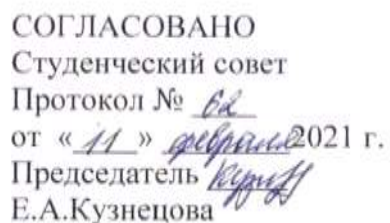 СОГЛАСОВАНО
Студенческий совет
Протокол № 62
от «11» февраля 2021 г.
Председатель
Е.А.Кузнецова